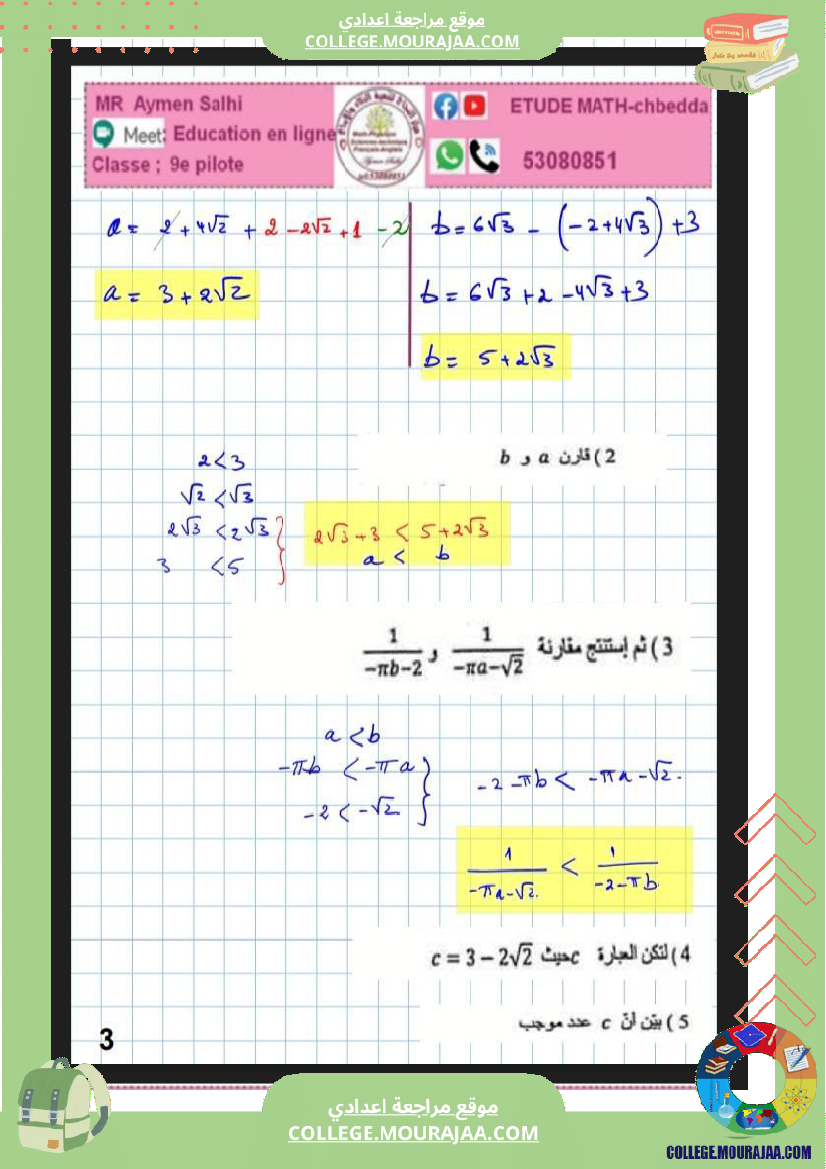 موقع مراجعة اعدادي
COLLEGE.MOURAJAA.COM
MR Aymen Salhi
Meet: Education en ligne
Classe ; 9e pilote
ETUDE MATH-chbedda
53080851
a = 2 + 4√2 + 2 - 2√2 + 1 - 2
a = 3 + 2√2
b = 6√3 - (-2+4√3) + 3
b = 6√3 + 2 - 4√3 + 3
b = 5 + 2√3
2) قارن a و b
2 < 3
√2 < √3
2√3 < 2√3
3 < 5
2√3 + 3 < 5 + 2√3
a < b
3) ثم إستنتج مقارنة 1/(-πa-√2) و 1/(-πb-2)
a < b
-πb < -πa
-2 < -√2
-2 -πb < -πa -√2.
1/(-πa-√2.) < 1/(-2-πb)
4) لتكن العبارة c حيث c = 3 − 2√2
5) بيّن أنّ c عدد موجب
3
موقع مراجعة اعدادي
COLLEGE.MOURAJAA.COM
COLLEGE.MOURAJAA.COM